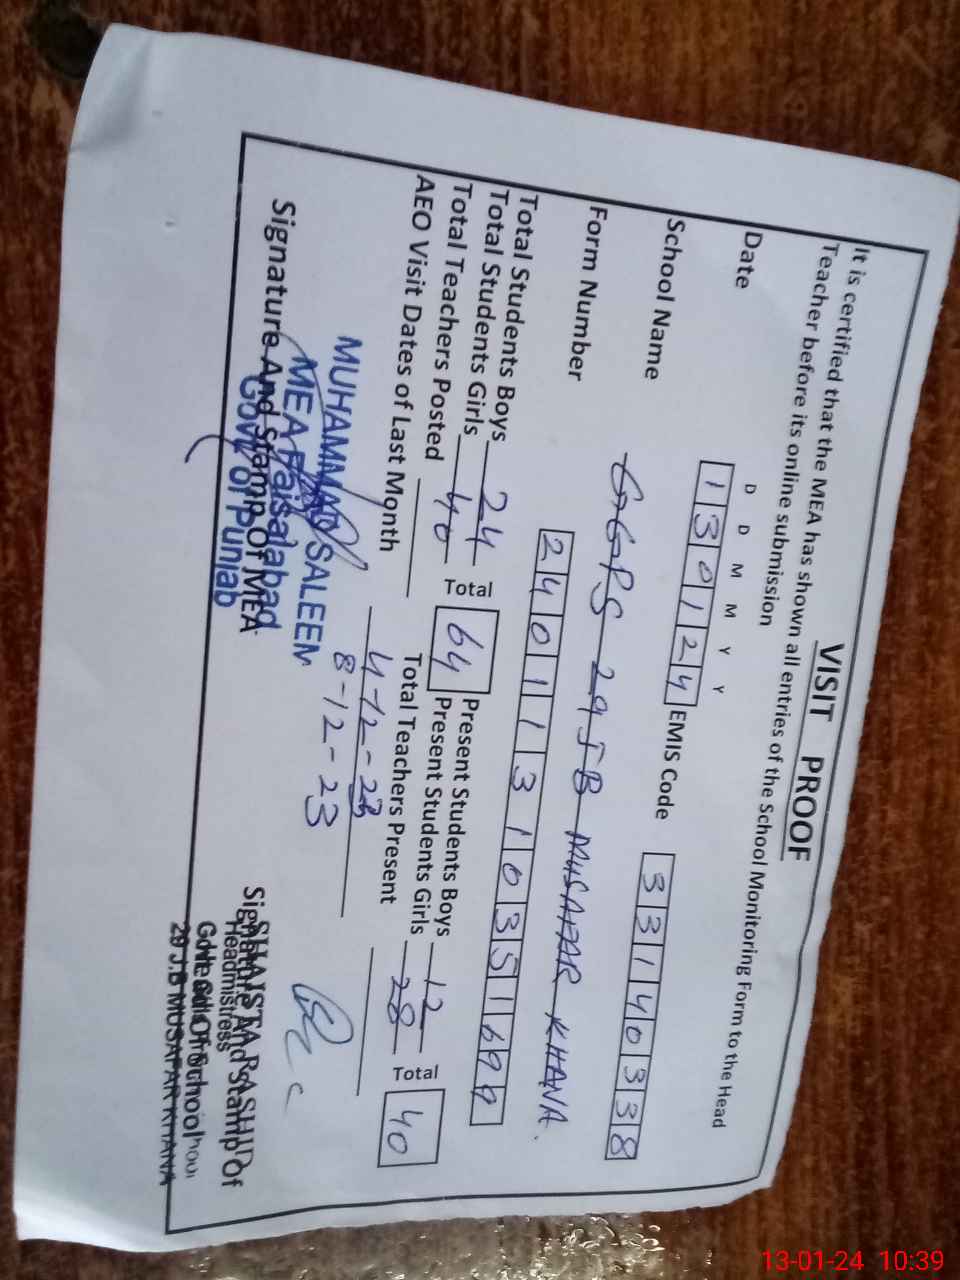 VISIT PROOF
It is certified that the MEA has shown all entries of the School Monitoring Form to the Head
Teacher before its online submission
D D M M Y Y
Date 130124 EMIS Code 33140338
School Name GGPS 29 JB MUSAFAR KHANA.
Form Number 24011310351699
Total Students Boys 24 Total 64 Present Students Boys 12 Total 40
Total Students Girls 40 Present Students Girls 28
Total Teachers Posted Total Teachers Present
AEO Visit Dates of Last Month 4-12-23
8-12-23
MUHAMMAD SALEEM
MEA Faisalabad
Govt of Punjab
Signature And Stamp Of MEA
Signature And Stamp Of
SHAISTA RASHID
Headmistress
29 J.B MUSAFAR KHANA
13-01-24 10:39